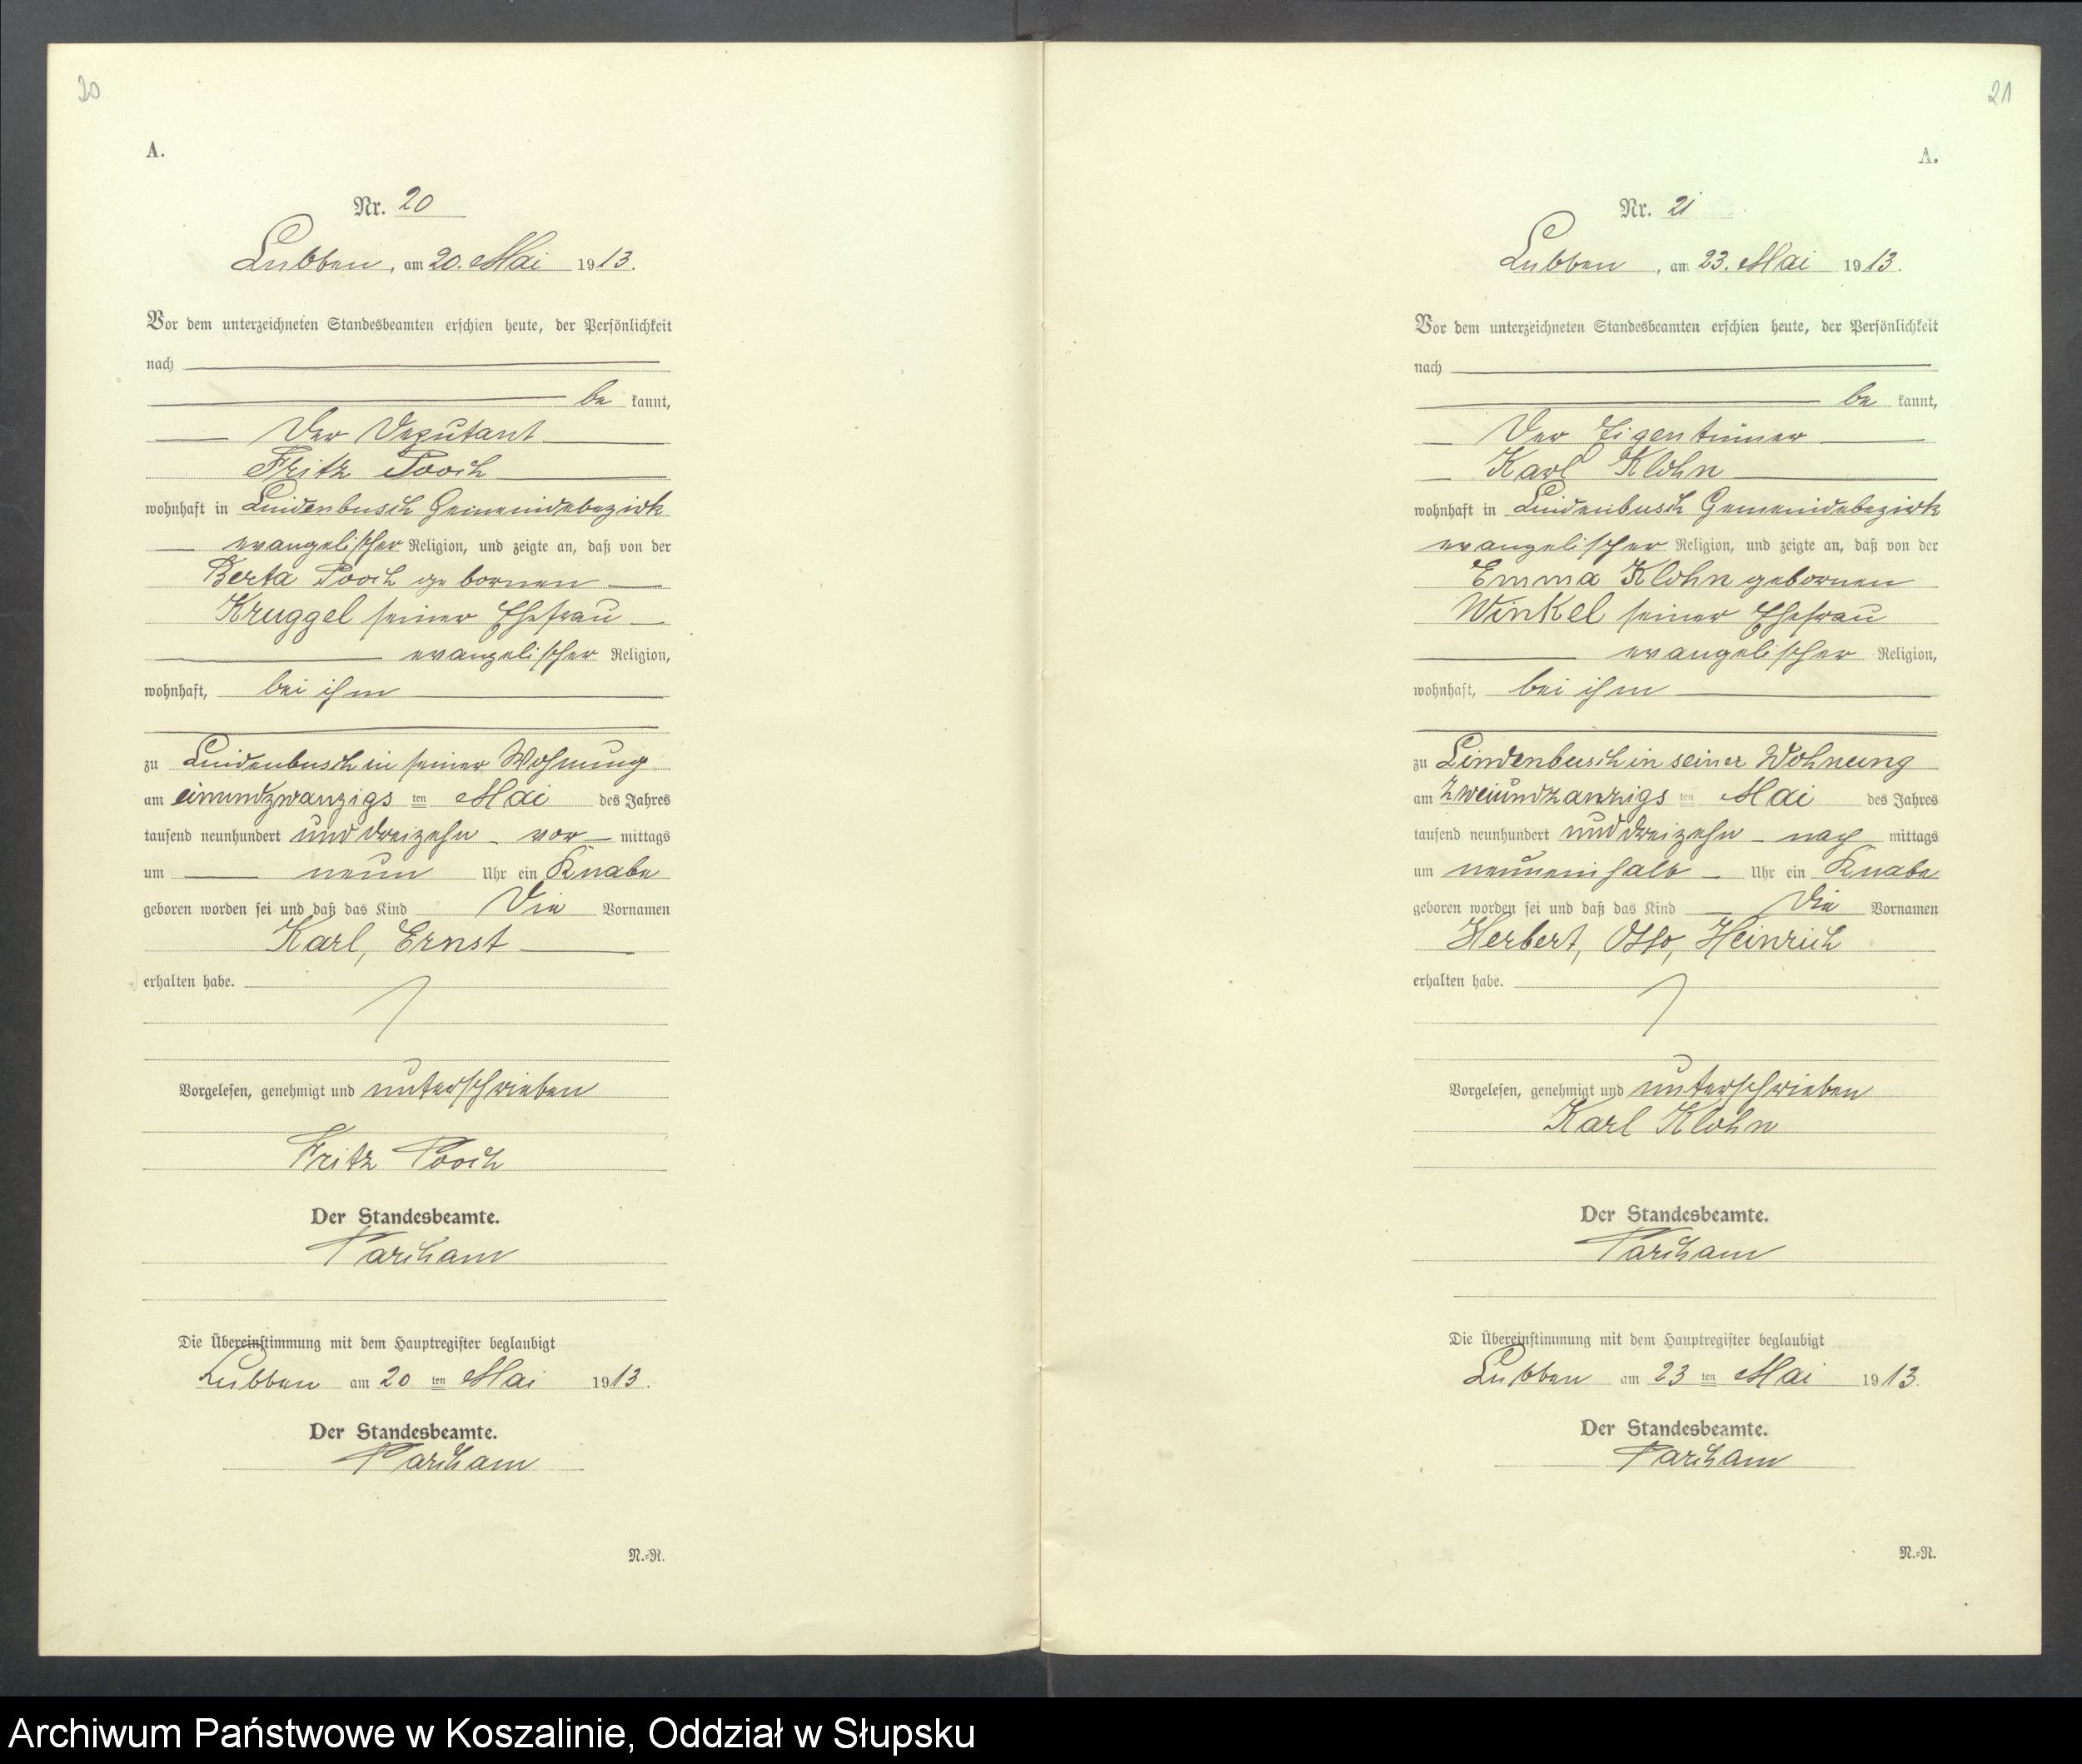 20
A.
Nr. 20
Lubben, am 20. Mai 1913.
Vor dem unterzeichneten Standesbeamten erschien heute, der Persönlichkeit
nach
be kannt,
Der Deputant
Fritz Pooch
wohnhaft in Lindenbusch Gemeindebezirk
evangelischer Religion, und zeigte an, daß von der
Berta Pooch gebornen
Kruggel seiner Ehefrau
evangelischer Religion,
wohnhaft, bei ihm
zu Lindenbusch in seiner Wohnung
am einundzwanzigs ten Mai des Jahres
tausend neunhundert und dreizehn vor mittags
um neun Uhr ein Knabe
geboren worden sei und daß das Kind die Vornamen
Karl, Ernst
erhalten habe.
Vorgelesen, genehmigt und unterschrieben
Fritz Pooch
Der Standesbeamte.
Parcham
Die Übereinstimmung mit dem Hauptregister beglaubigt
Lubben am 20 ten Mai 1913.
Der Standesbeamte.
Parcham
N.=R.
21
A.
Nr. 21
Lubben, am 23. Mai 1913.
Vor dem unterzeichneten Standesbeamten erschien heute, der Persönlichkeit
nach
be kannt,
Der Eigentümer
Karl Klohn
wohnhaft in Lindenbusch Gemeindebezirk
evangelischer Religion, und zeigte an, daß von der
Emma Klohn gebornen
Winkel seiner Ehefrau
evangelischer Religion,
wohnhaft, bei ihm
zu Lindenbusch in seiner Wohnung
am zweiundzanzigs ten Mai des Jahres
tausend neunhundert und dreizehn nach mittags
um neuneinhalb Uhr ein Knabe
geboren worden sei und daß das Kind die Vornamen
Herbert, Otto, Heinrich
erhalten habe.
Vorgelesen, genehmigt und unterschrieben
Karl Klohn
Der Standesbeamte.
Parcham
Die Übereinstimmung mit dem Hauptregister beglaubigt
Lubben am 23 ten Mai 1913.
Der Standesbeamte.
Parcham
N.=R.
Archiwum Państwowe w Koszalinie, Oddział w Słupsku